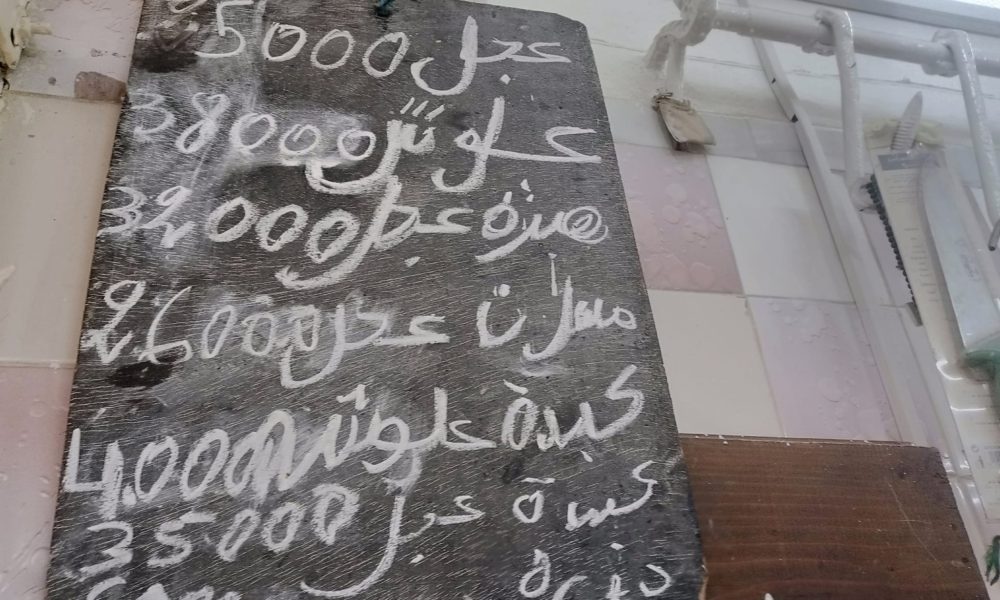 عجل 25000
علوش 38000
هبرة عجل 32000
مسلان عجل 26000
كبدة علوش 40000
كبدة عجل 35000